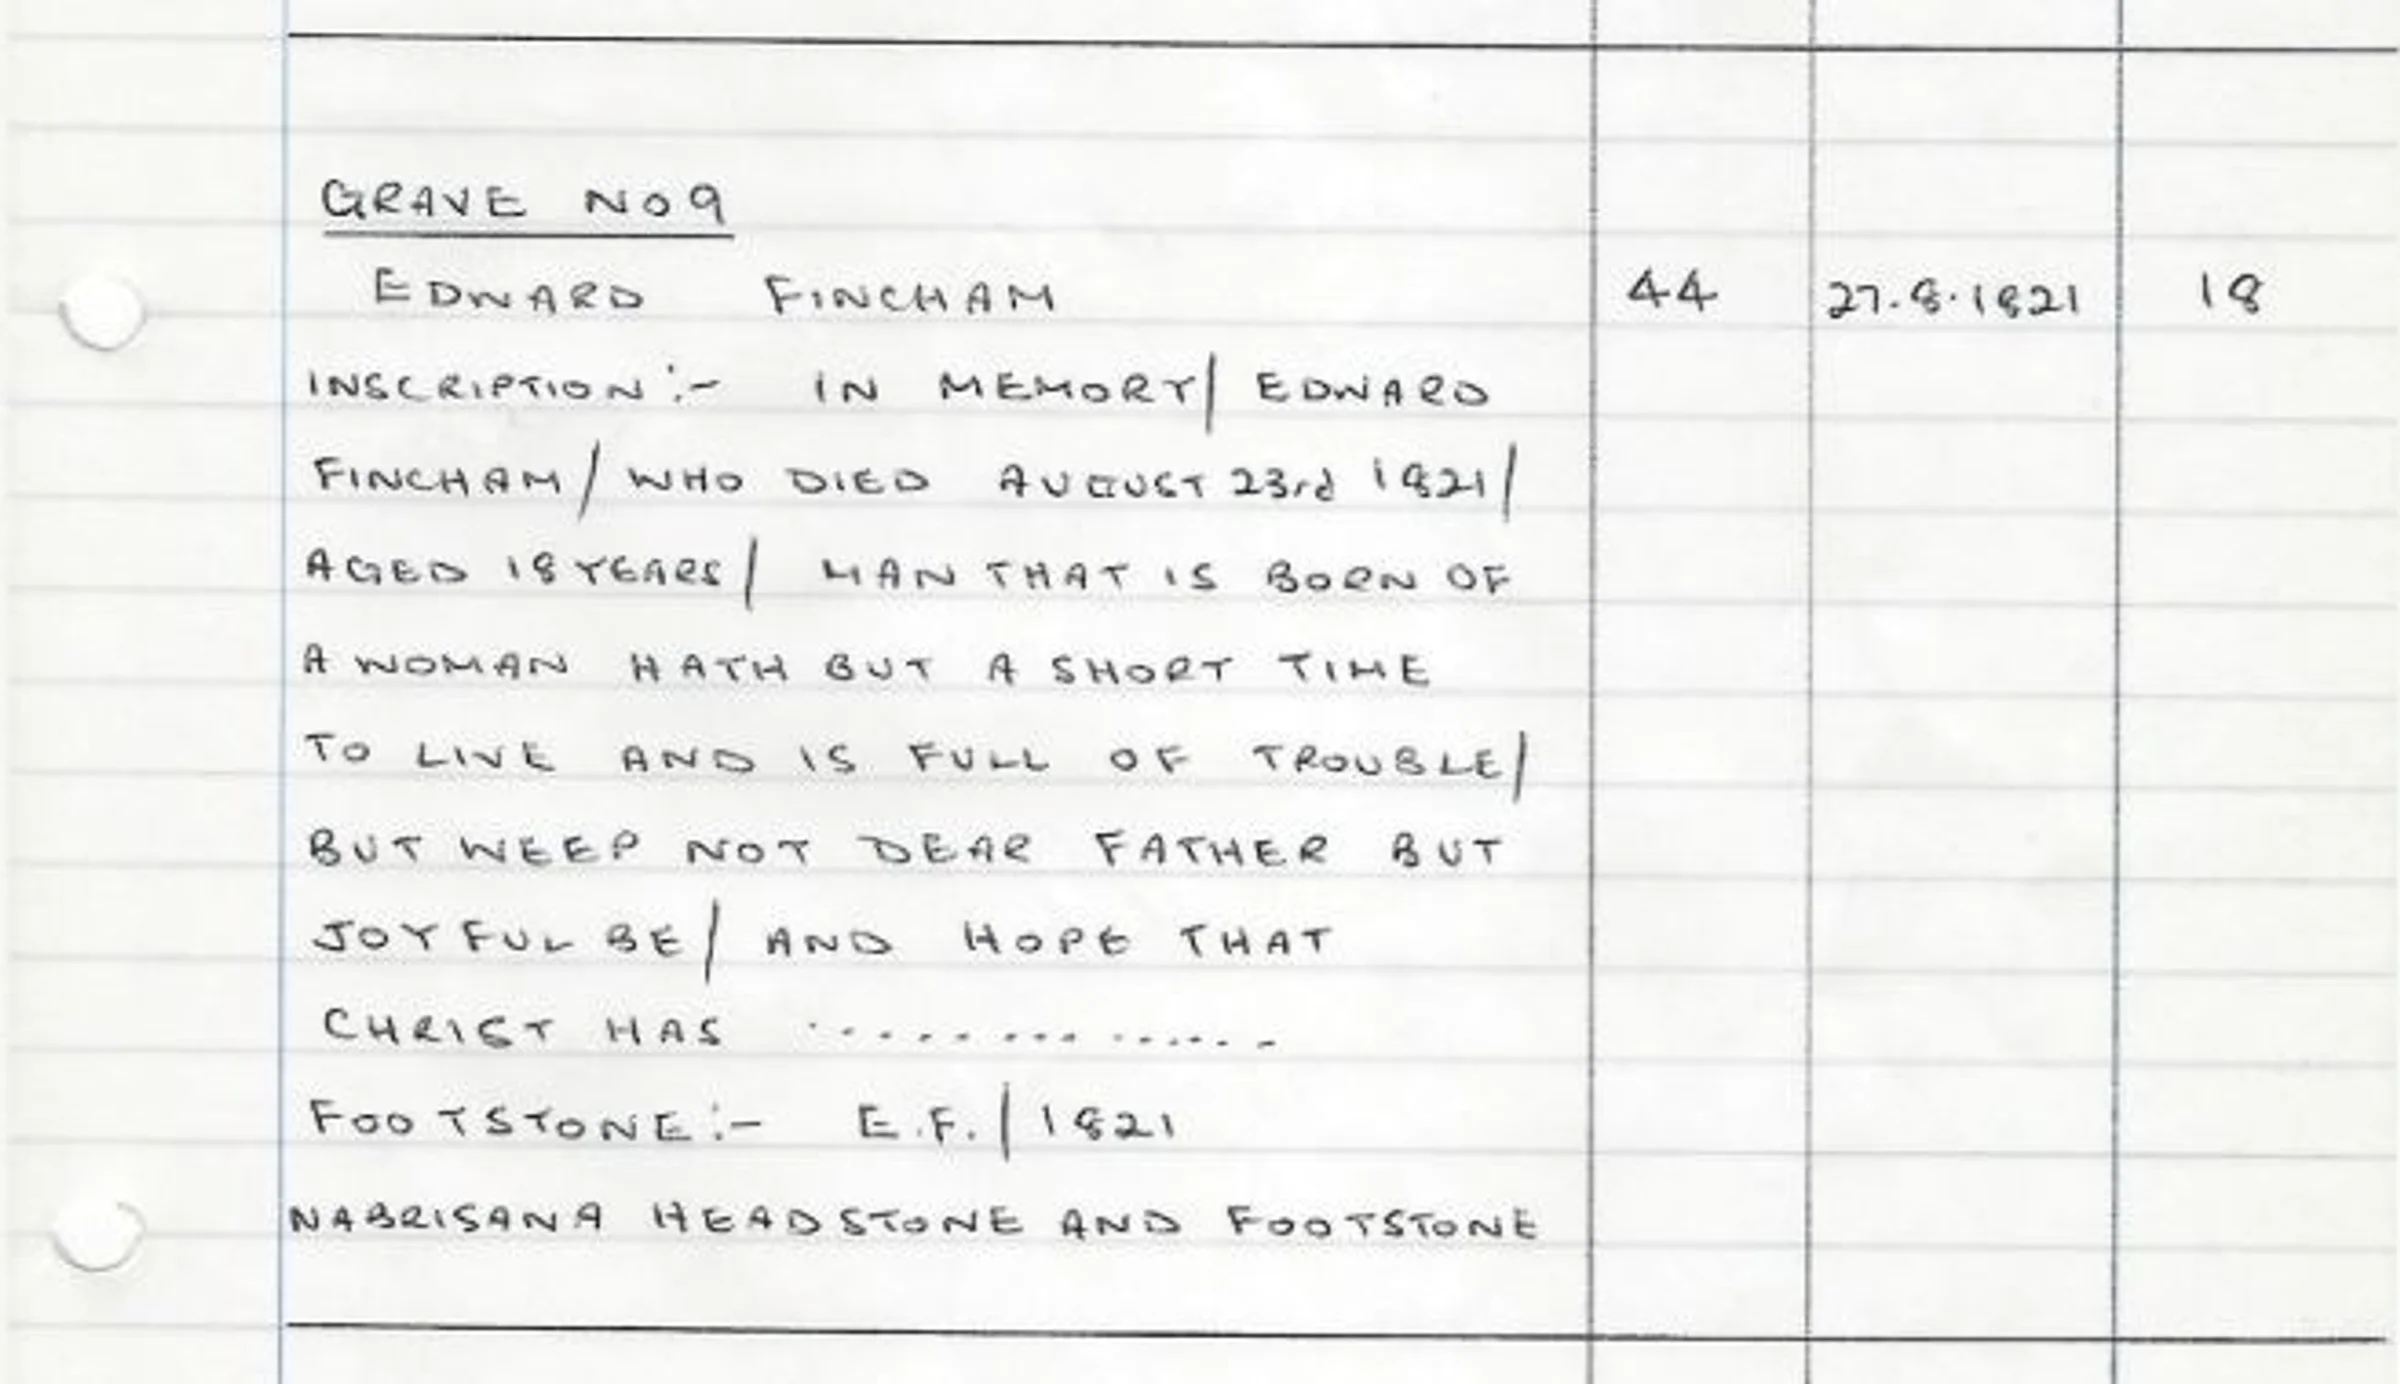 GRAVE NO 9
EDWARD FINCHAM 44 27.8.1821 18
INSCRIPTION:- IN MEMORY/ EDWARD
FINCHAM/ WHO DIED AUGUST 23rd 1821/
AGED 18 YEARS/ MAN THAT IS BORN OF
A WOMAN HATH BUT A SHORT TIME
TO LIVE AND IS FULL OF TROUBLE/
BUT WEEP NOT DEAR FATHER BUT
JOYFUL BE/ AND HOPE THAT
CHRIST HAS ..............
FOOTSTONE:- E.F./ 1821
NABRISANA HEADSTONE AND FOOTSTONE